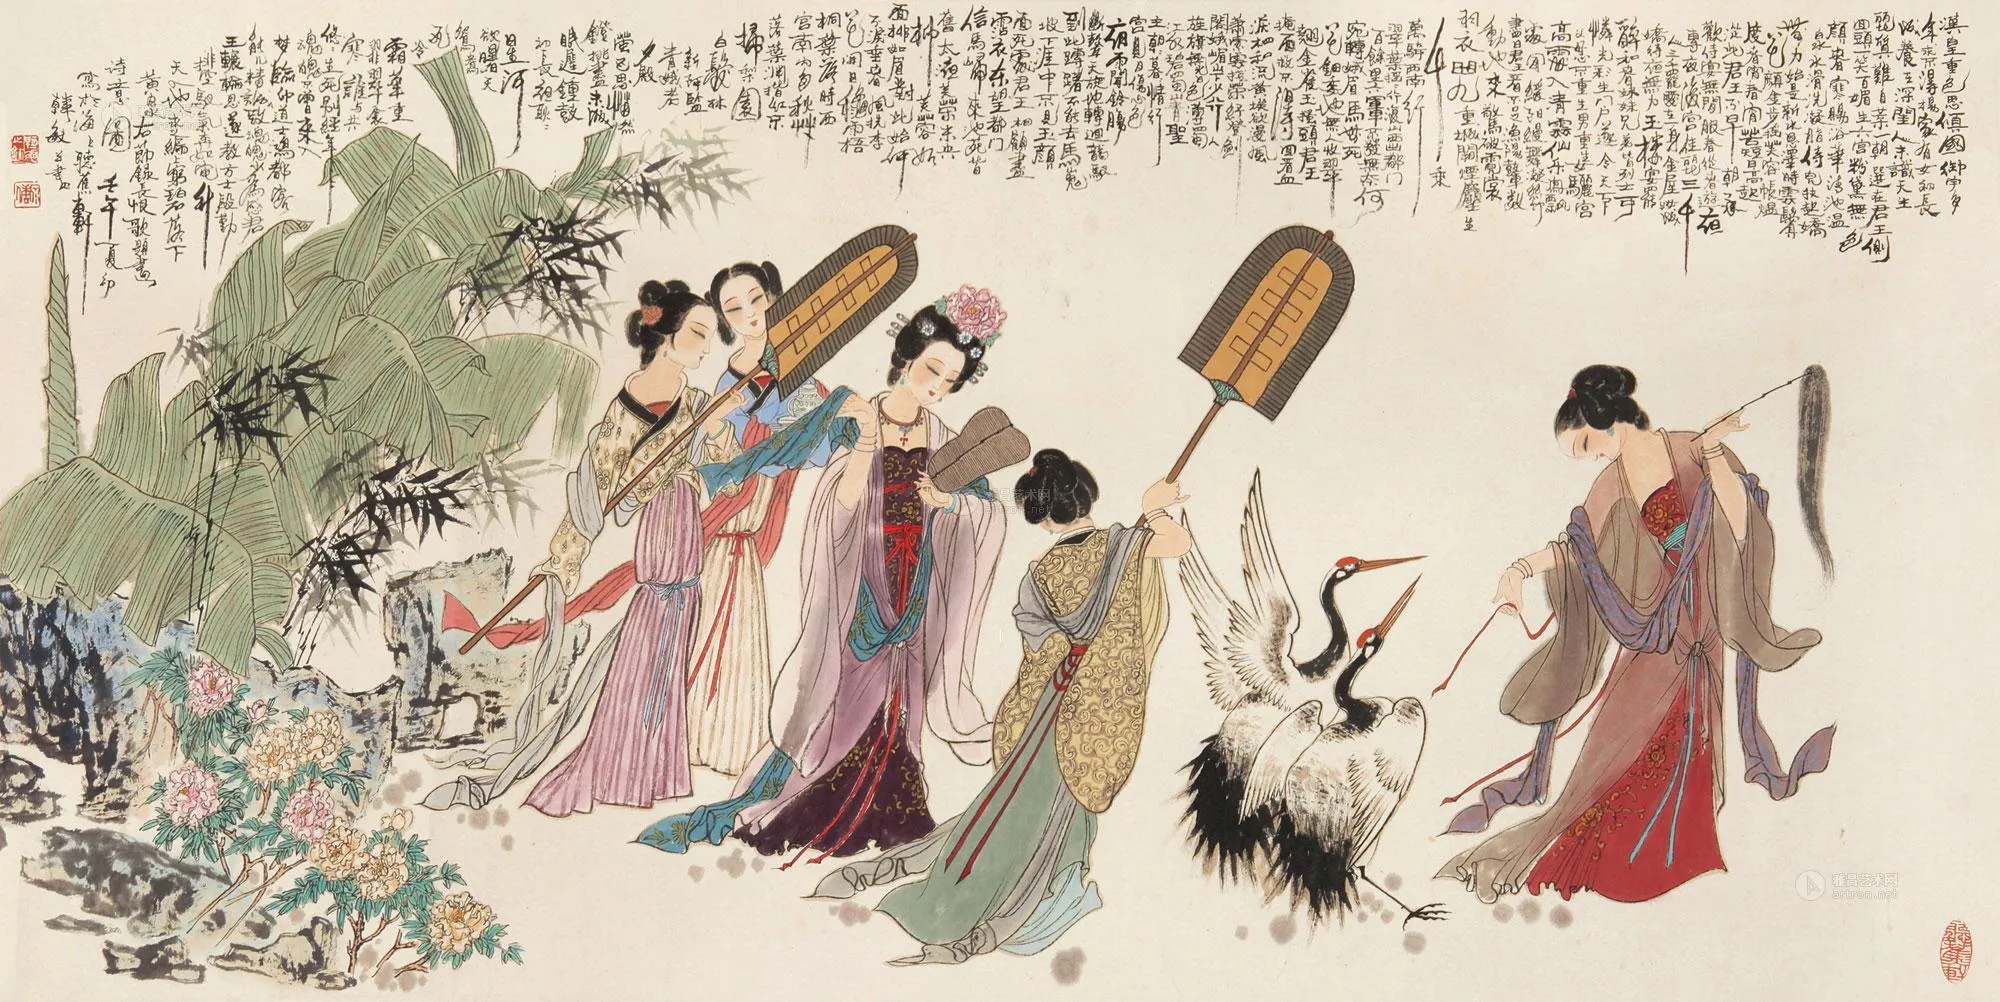 漢皇重色思傾國御宇多
年求不得楊家有女初長
成養在深閨人未識天生
麗質難自棄一朝選在君王側
回頭一笑百媚生六宮粉黛無
顏色春寒賜浴華清池溫
泉水滑洗凝脂侍兒扶起嬌
無力始是新承恩澤時雲鬢
花顏金步搖芙蓉帳煖
度春宵春宵苦短日高起
從此君王不早朝承
歡侍宴無閒暇春從春遊夜
專夜後宮佳麗三千
人三千寵愛在一身金屋妝成
嬌侍夜玉樓宴罷
醉和春姊妹兄弟皆列士可
憐光彩生門戶遂令天下
父母心不重生男重生女驪宮
高處入青雲仙樂風飄
處處聞緩歌慢舞凝絲竹
盡日君王看不足漁陽鼙鼓
動地來驚破霓裳
羽衣曲九重城闕煙塵生
千乘
萬騎西南行
翠華搖搖行復止西出都門
百餘里六軍不發無奈何
宛轉娥眉馬前死
花鈿委地無人收翠
翹金雀玉搔頭君王
掩面救不得回看血
淚相和流黃埃散漫風
蕭索雲棧縈紆登劍
閣峨嵋山下少人行
旌旗無光日色薄蜀
江水碧蜀山青聖
主朝朝暮暮情行
宮見月傷心色
夜雨聞鈴腸
斷聲天旋地轉迴龍馭
到此躊躇不能去馬嵬
坡下泥土中不見玉顏
空死處君王相顧盡
沾衣東望都門
信馬歸歸來池苑皆
舊太液芙蓉未央
柳芙蓉如
面柳如眉對此如何
不淚垂春風桃李
花開日秋雨梧
桐葉落時西
宮南內多秋草
落葉滿階紅不
掃梨園
青娥老
夕殿
螢飛思悄然
燈挑盡未成
眠遲遲鐘鼓
初長夜耿耿
星河
欲曙天
鴛鴦
瓦冷
霜華重
翡翠衾
寒誰與共
悠悠生死別經年
魂魄不曾來入
夢臨邛道士鴻都客
能以精誠致魂魄為感君
王輾轉思遂教方士殷勤
排空馭氣奔如電升
天入地求之遍上窮碧落下
黃泉右節錄長恨歌題畫
詩意圖壬午夏
寫於海上聽蕉軒
韓敏并書
雅昌艺术网
artron.net